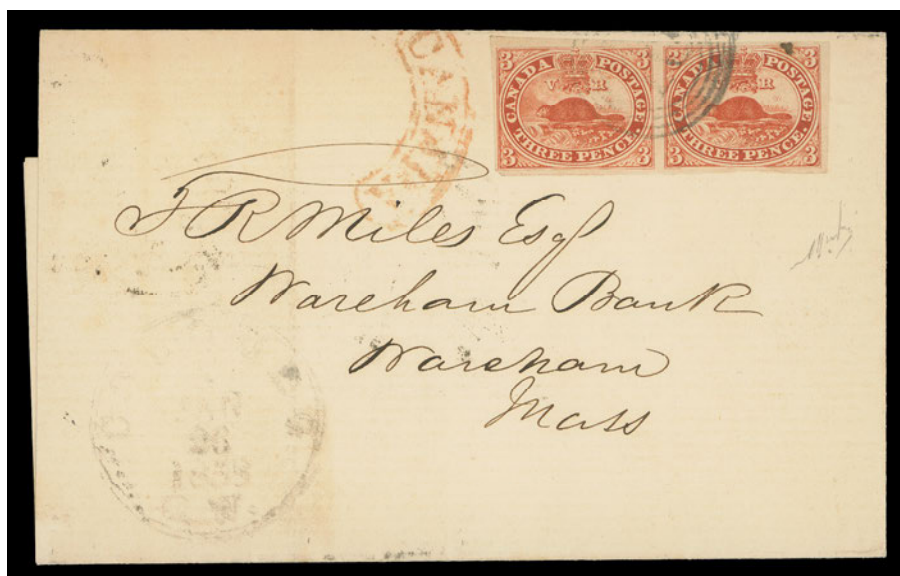 CANADA
3 CANADA POSTAGE. 3
V R
3 THREE PENCE. 3
3 CANADA POSTAGE. 3
R
3 THREE PENCE. 3
J R Miles Esq
Wareham Bank
Wareham
Mass